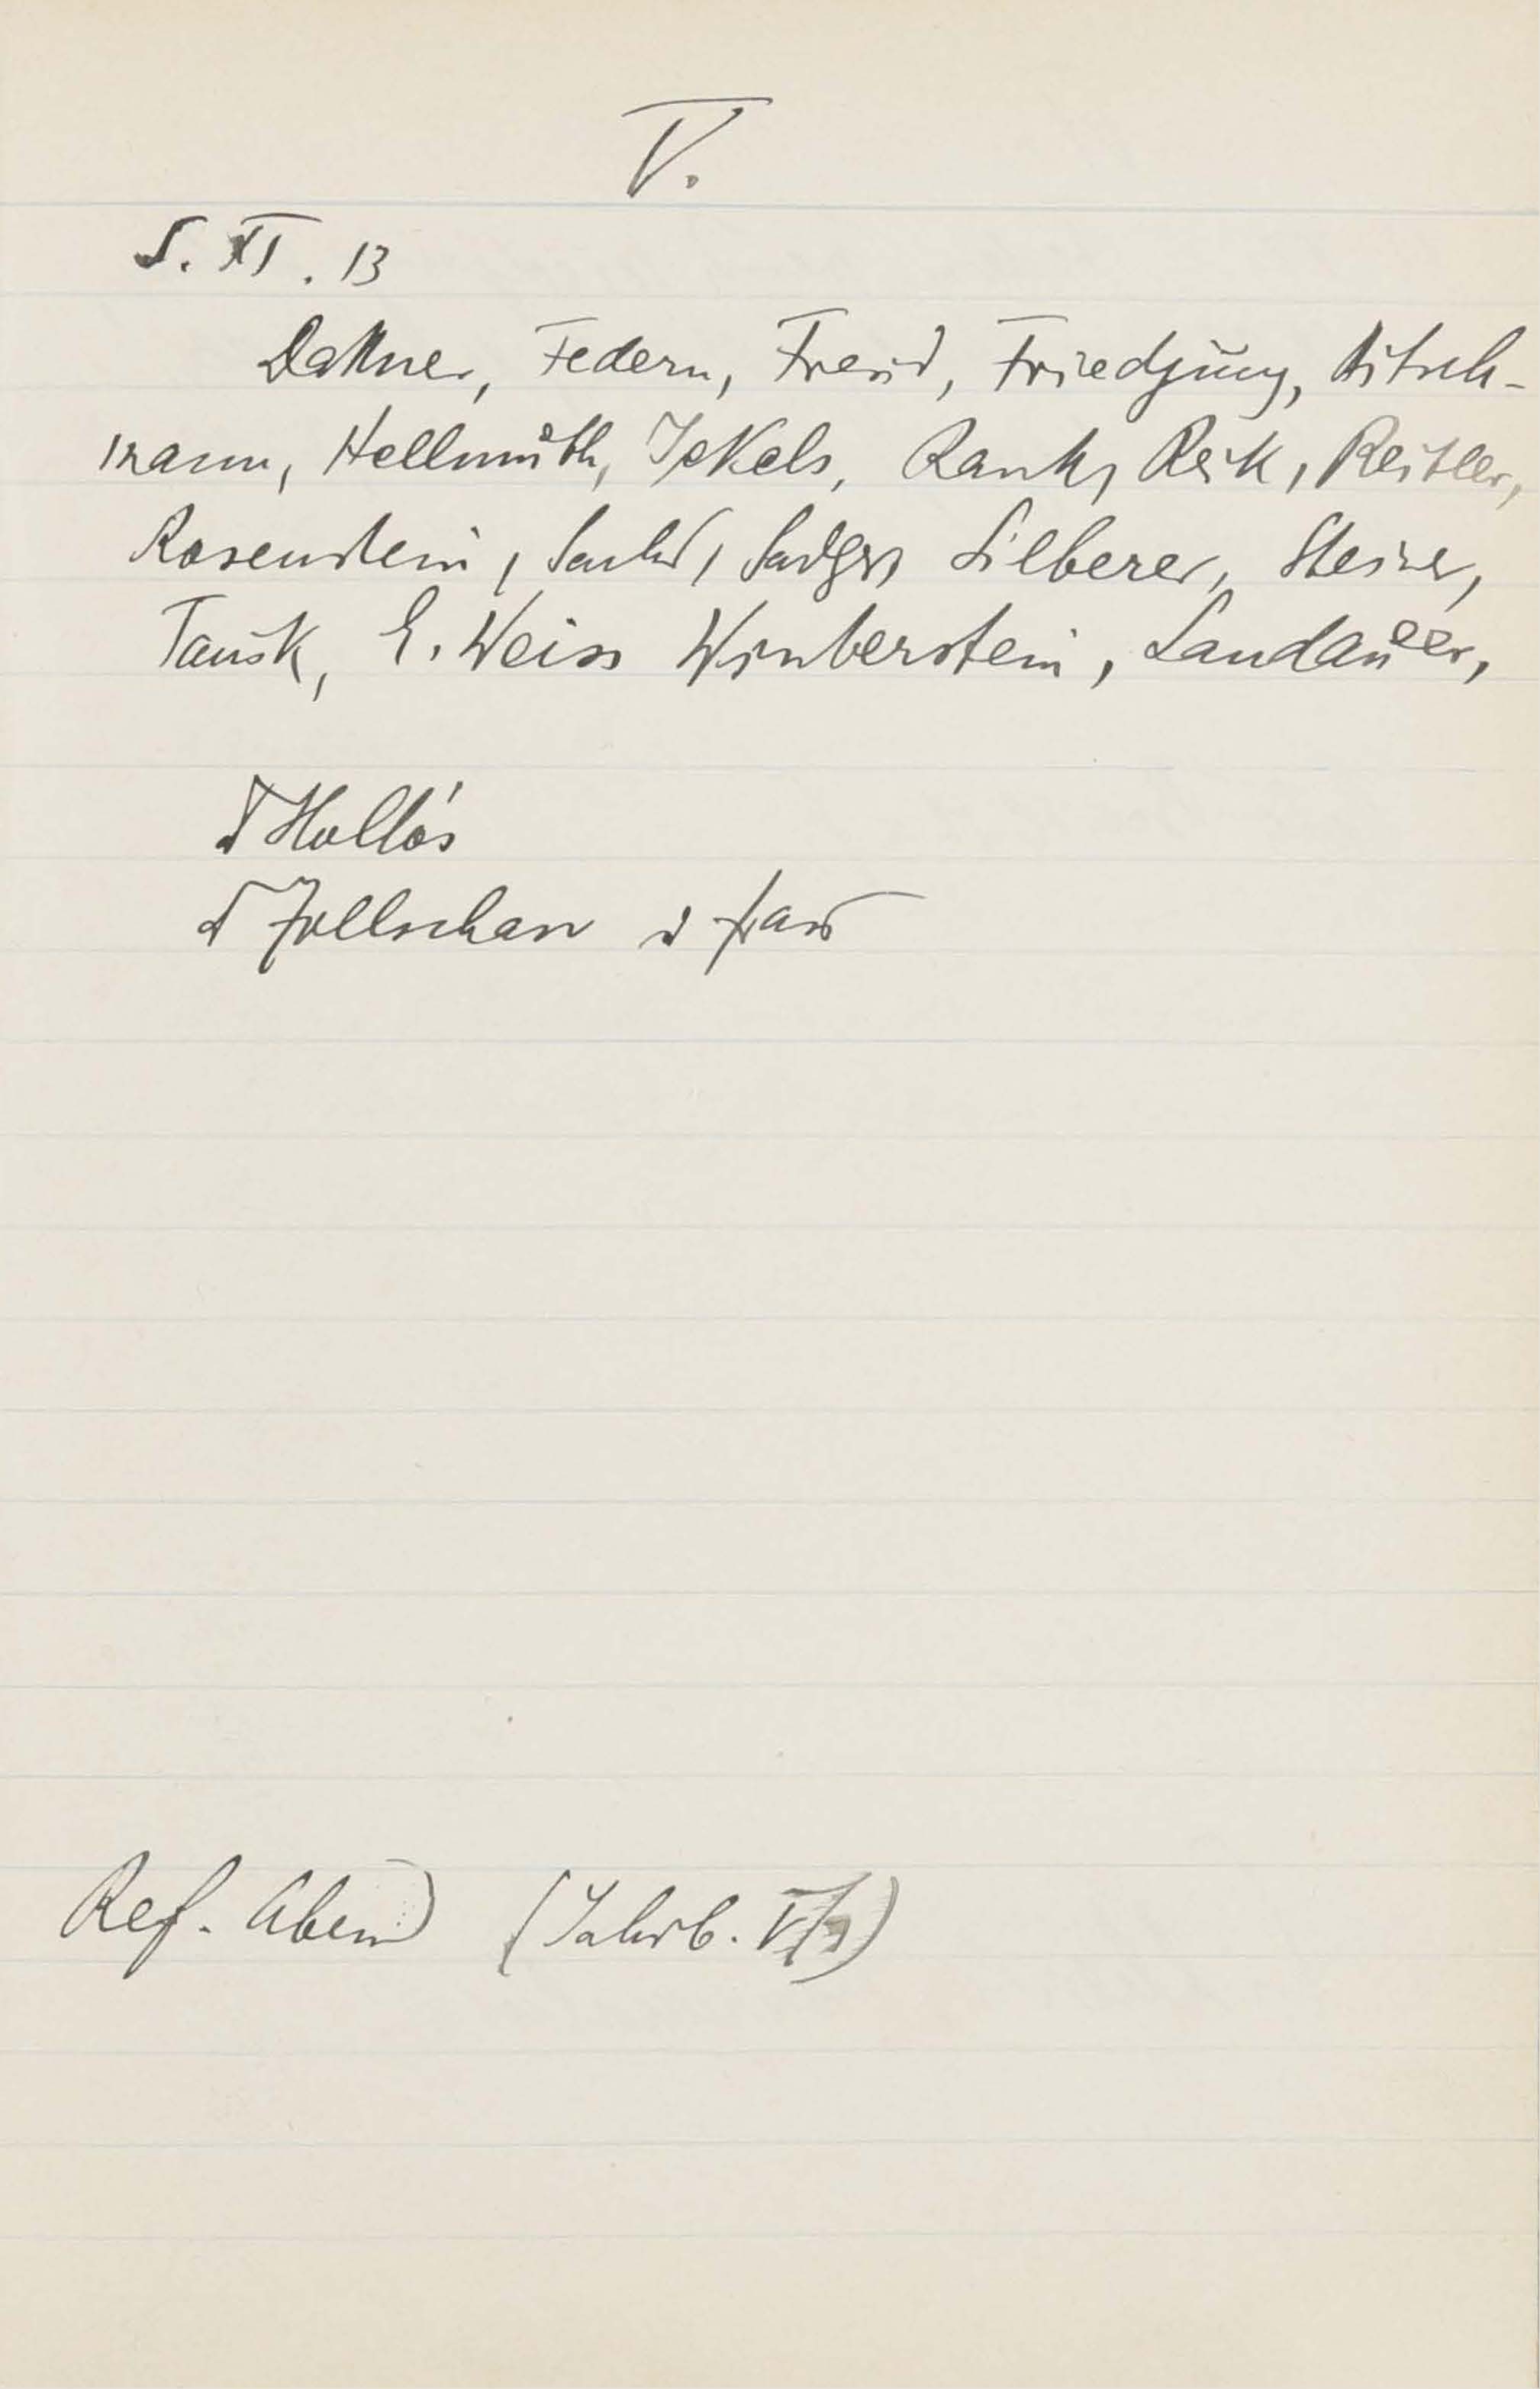 V.
5. XI. 13
Dattner, Federn, Freud, Friedjung, Hitsch-
mann, Hellmuth, Jekels, Rank, Reik, Reitler,
Rosenstein, Sachs, Sadger, Silberer, Steiner,
Tausk, E. Weiss Winterstein, Landauer,
Dr Hollós
Dr Zollschan u Frau
Ref. Abend (Jahrb.